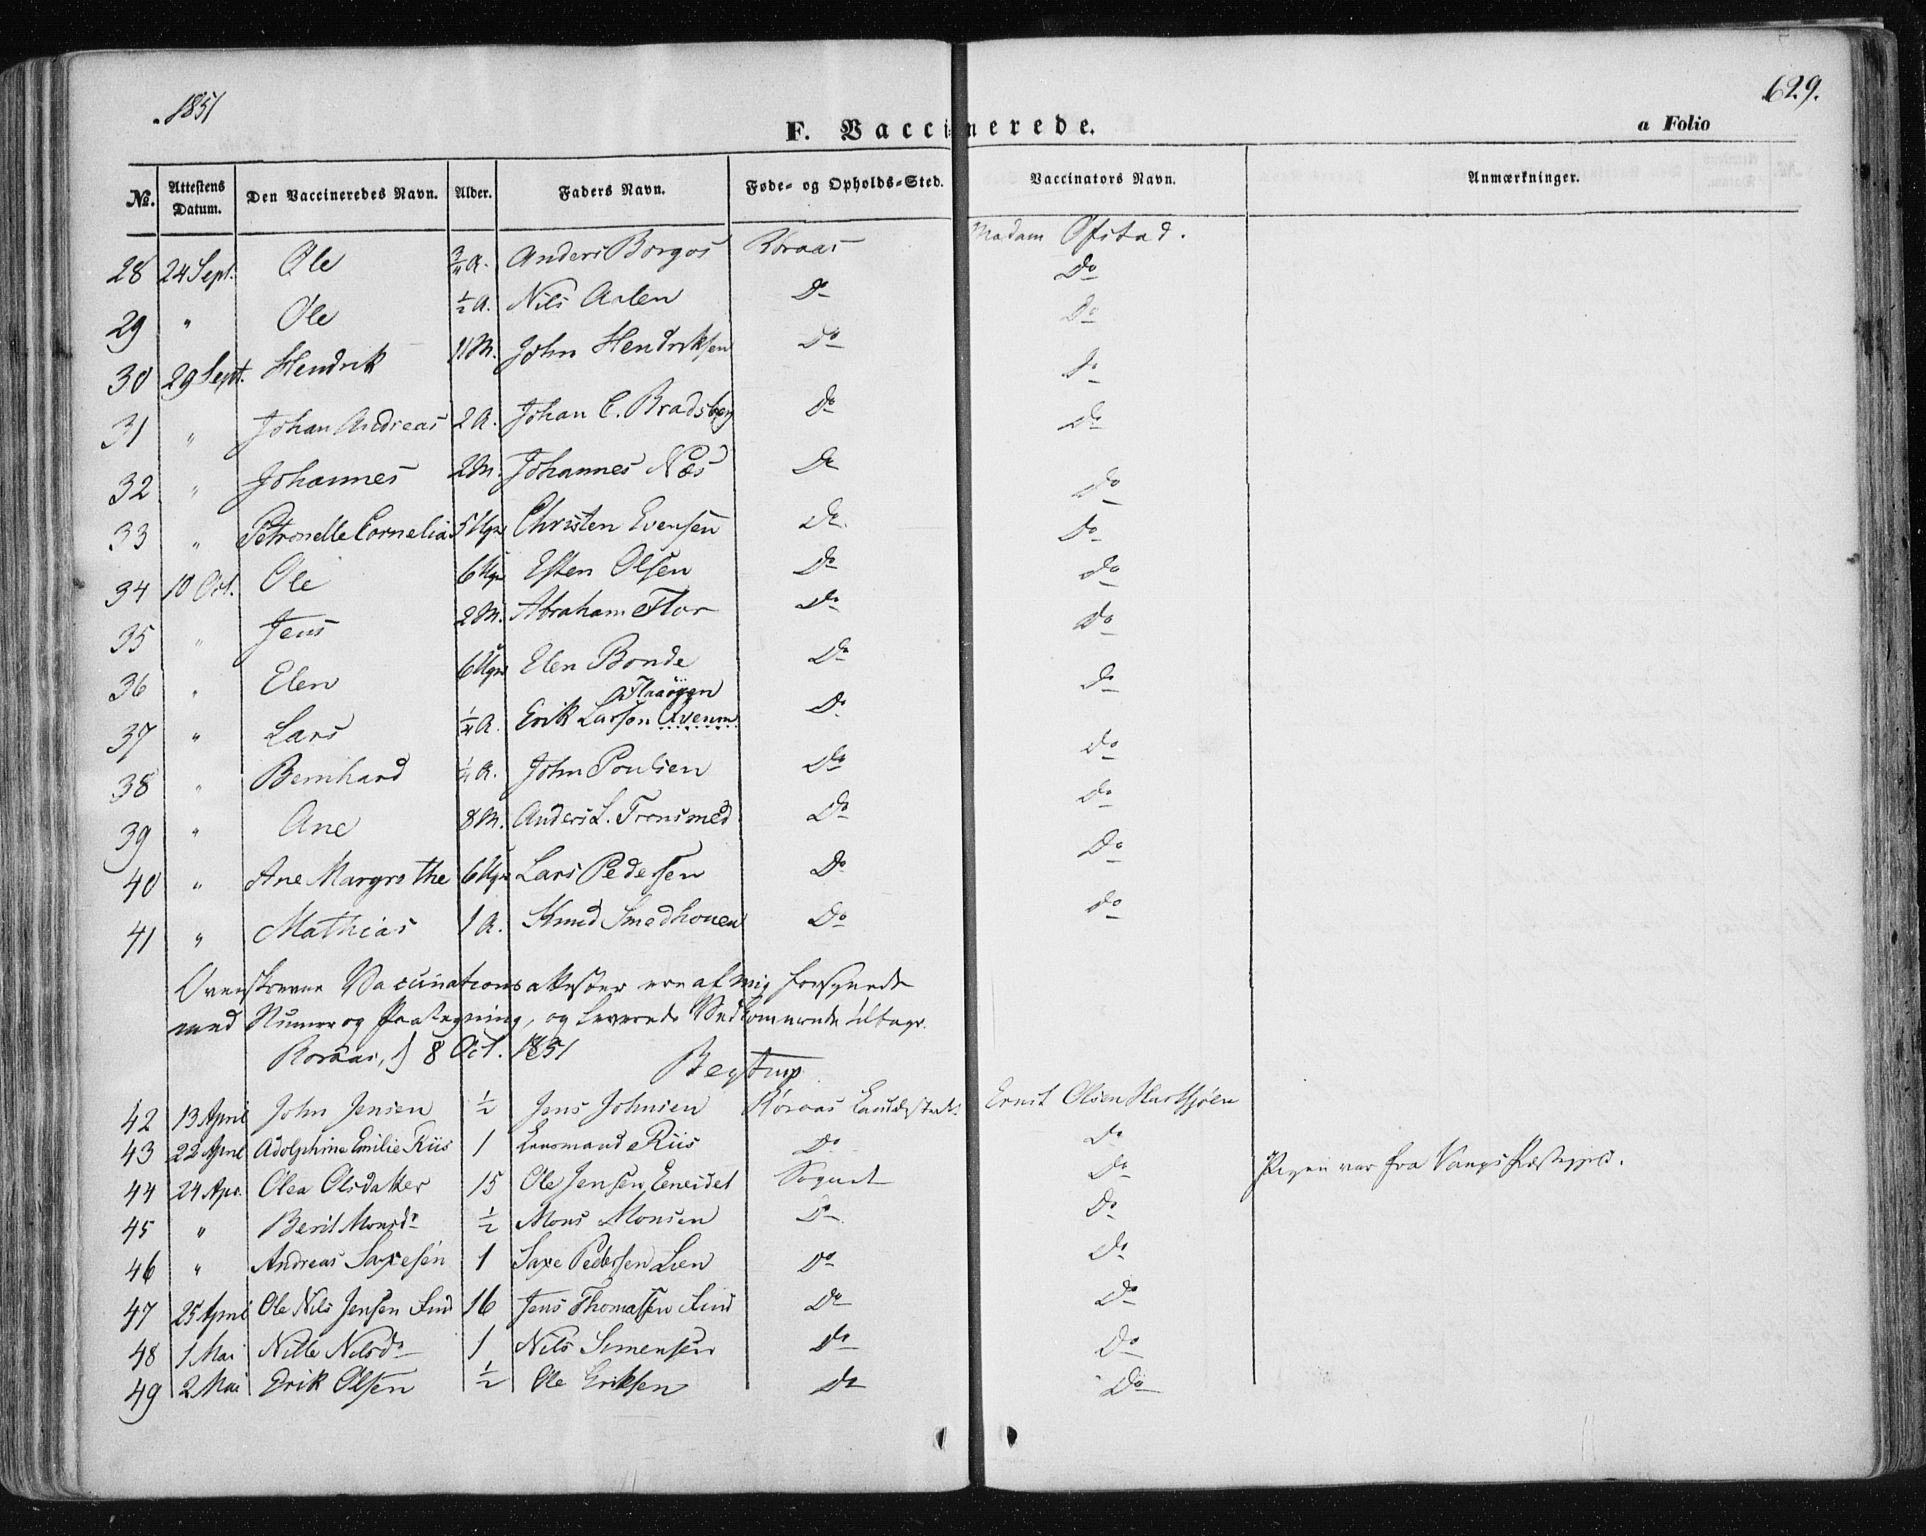 1851
629.
F. Vaccinerede.
a Folio
No. Attestens Datum. Den Vaccineredes Navn. Alder. Faders Navn. Føde- og Opholds-Sted. Vaccinators Navn. Anmærkninger.
28 24 Sept. Ole 3/4 A. Anders Borgos Röraas Madam Ofstad.
29 " Ole 1/2 A. Nils Aalen Do Do
30 29 Sept. Hendrik 11 M. John Hendriksen Do Do
31 " Johan Andreas 2 A. Johan C. Bradsberg Do Do
32 " Johannes 2 M. Johannes Næs Do Do
33 " Petronelle Cornelia 5 Ugr Christen Evensen Do Do
34 10 Oct. Ole 6 Ugr Esten Olsen Do Do
35 " Jens 2 M. Abraham Flor Do Do
36 " Elen 6 Ugr Elen Bonde Do Do
37 " Lars 1/4 A. Erik Larsen Do Do
38 " Bernhard 1/4 A. John Poulsen Do Do
39 " Ane 8 M. Anders L. Tronsmed Do Do
40 " Ane Margrethe 6 Ugr Lars Pedersen Do Do
41 " Mathias 1 A. Knud Smedhouen Do Do
Ovenskrevne Vaccinationsattester ere af mig forsynede
med Numer og Paategning, og leverede Vedkommende tilbage.
Roraas, d 8 Oct. 1851
Beytrup
42 13 April John Jensen 1/2 Jens Johnsen Röraas Landsstrekn. Ernst Olsen
43 22 April Adolphine Emilie Riis 1 Lensmand Riis Do Do
44 24 Apr. Olea Olsdatter 15 Ole Jensen Eneidet Sognet Do Pigen var fra Vangs Præstegjeld.
45 " Berit Monsdr 1/2 Mons Monsen Do Do
46 " Andreas Saxesen 1 Saxe Pedersen Lien Do Do
47 25 April Ole Nils Jensen Lund 16 Jens Thomassen Lund Do Do
48 1 Mai Nille Nilsdr 1 Nils Simensen Do Do
49 2 Mai Erik Olsen 1/2 Ole Eriksen Do Do